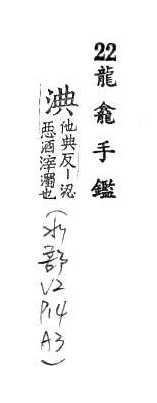 22龍龕手鑑
淟他典反丨涊
惡酒滓濁也
(水部
V2
P14
A3)